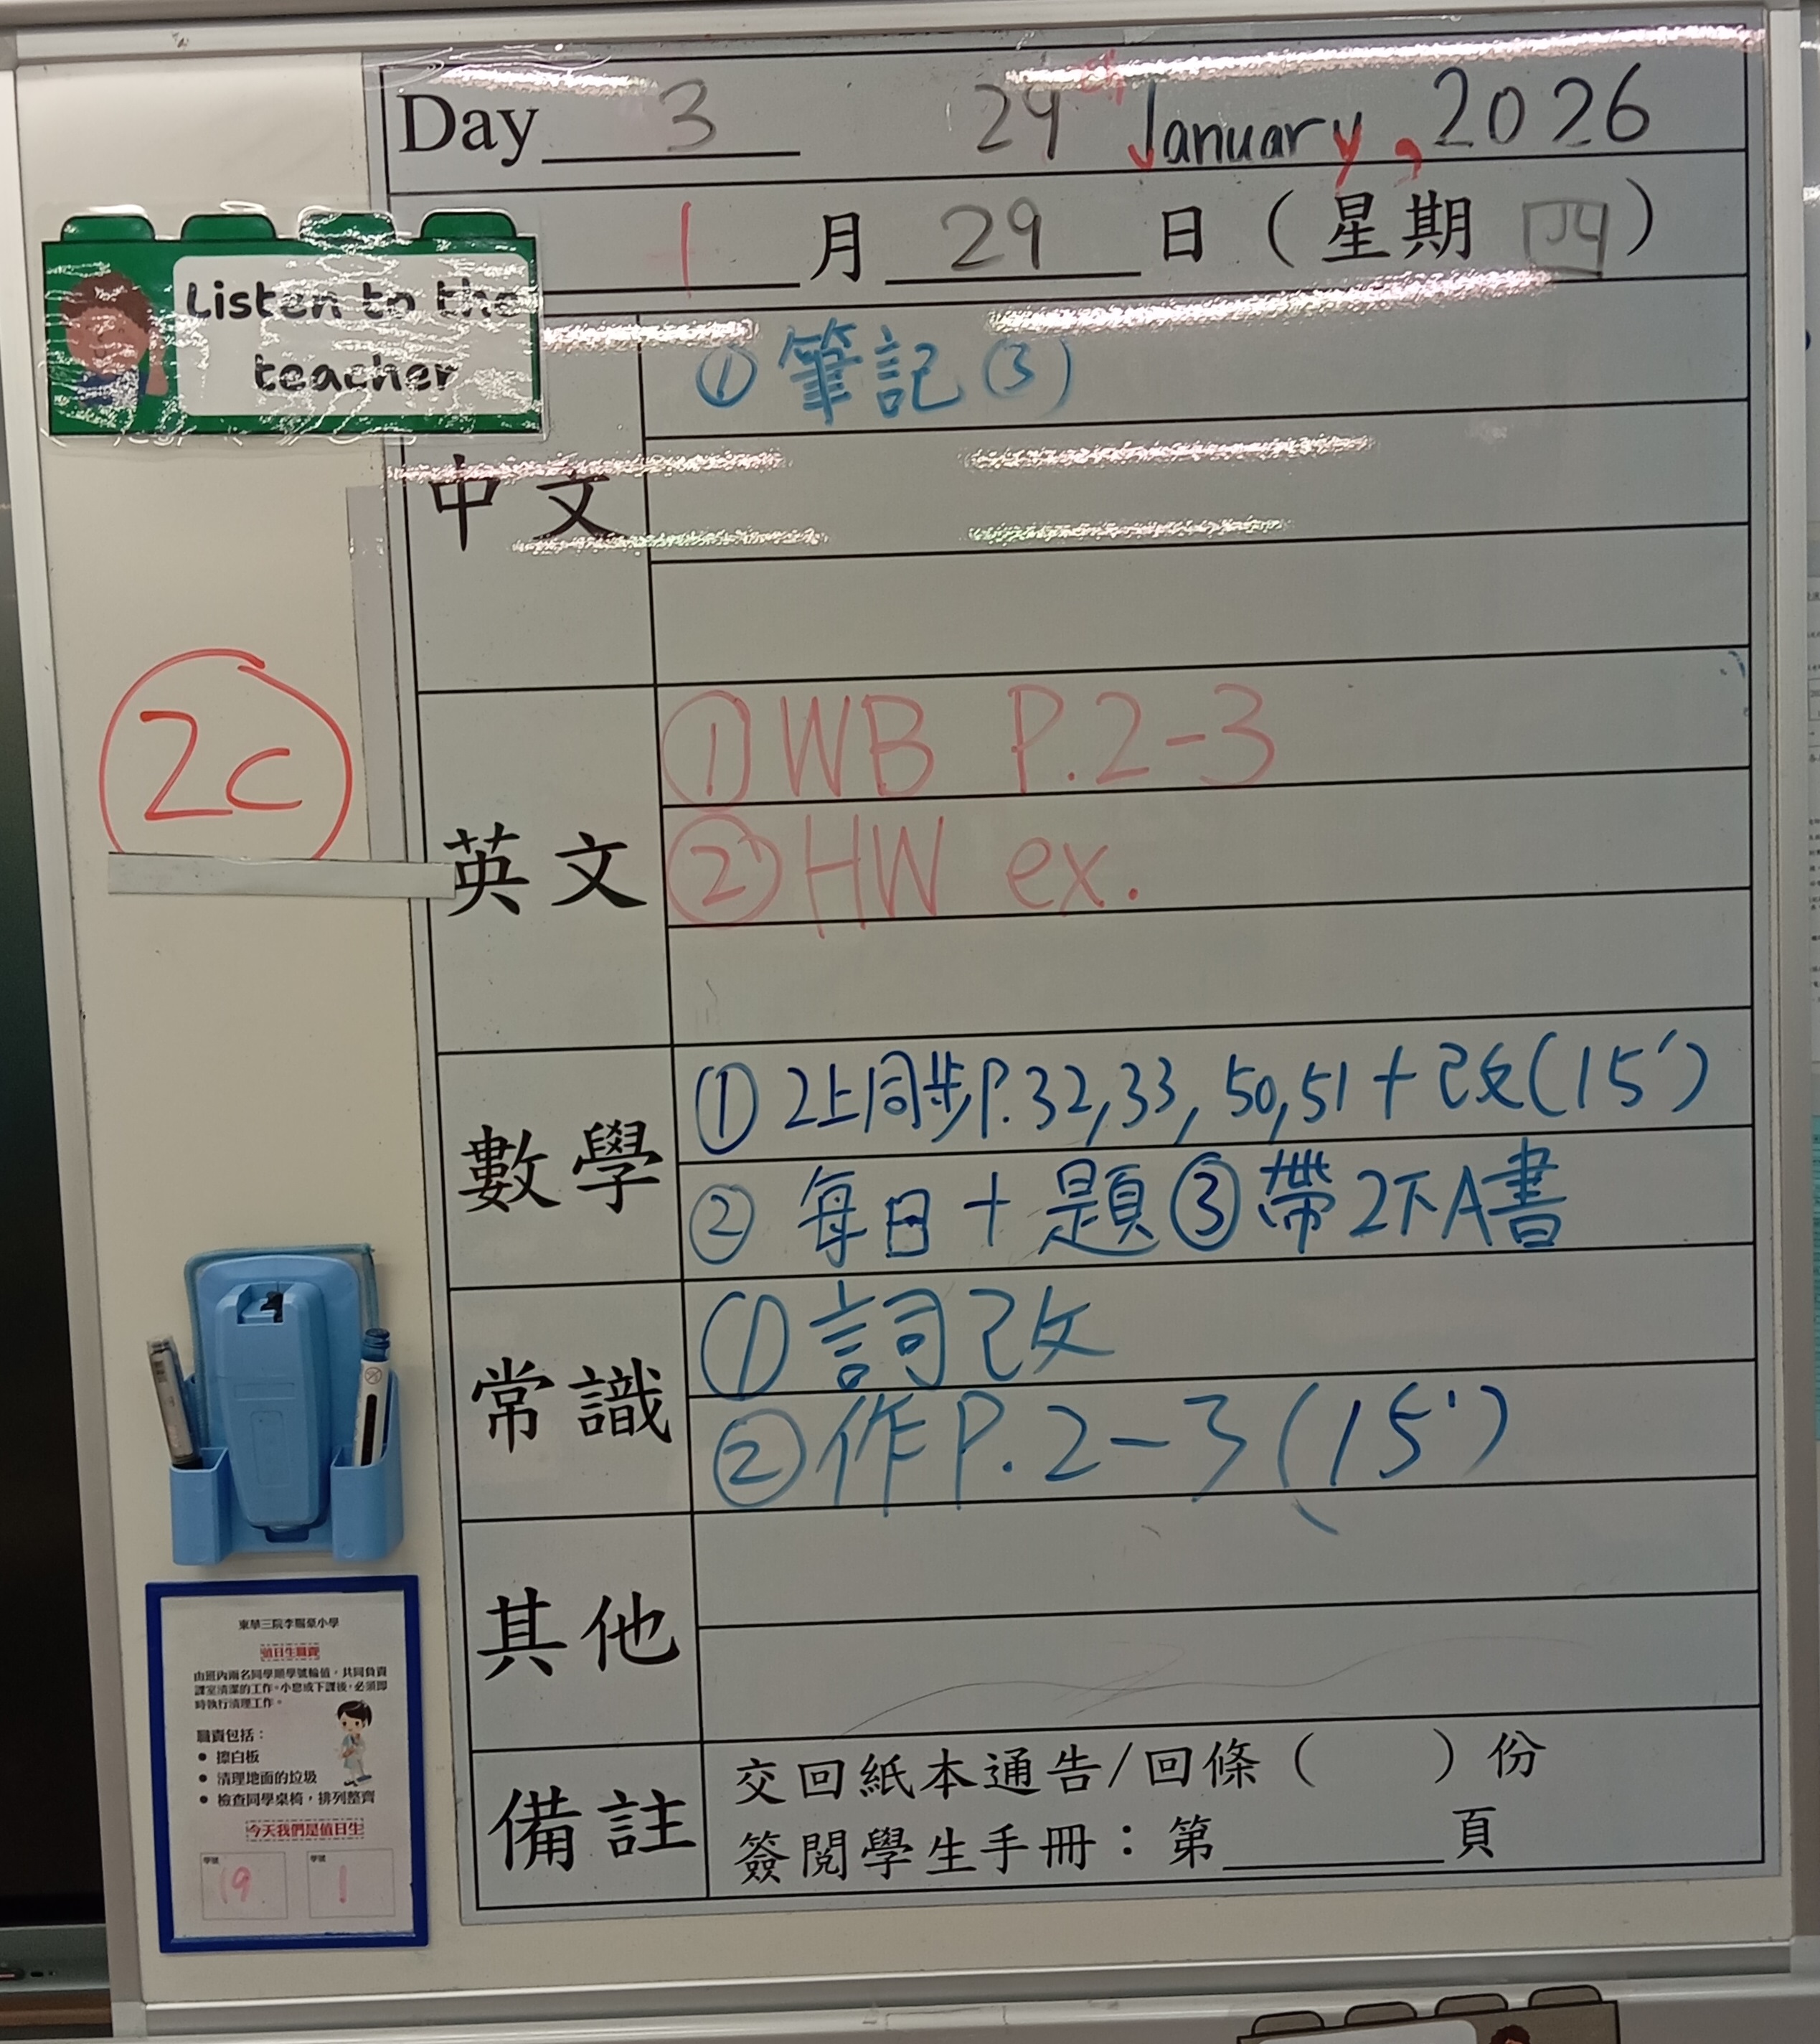 Day 3 29th January, 2026
1 月 29 日 ( 星期 四 )
Listen to the
teacher
中文
① 筆記 (3)
2C
英文
① WB P.2-3
② HW ex.
數學
① 2上同步P.32,33, 50,51 + 改(15')
② 每日十題 ③ 帶2下A書
常識
① 詞改
② 作P.2-3 (15')
其他
備註
交回紙本通告/回條 ( ) 份
簽閱學生手冊：第 頁
東華三院李賜豪小學
值日生職責
由班內兩名同學順學號輪值，共同負責
課室清潔的工作。小息或下課後，必須即
時執行清理工作。
職責包括：
● 擦白板
● 清理地面的垃圾
● 檢查同學桌椅，排列整齊
今天我們是值日生
學號 學號
19 1